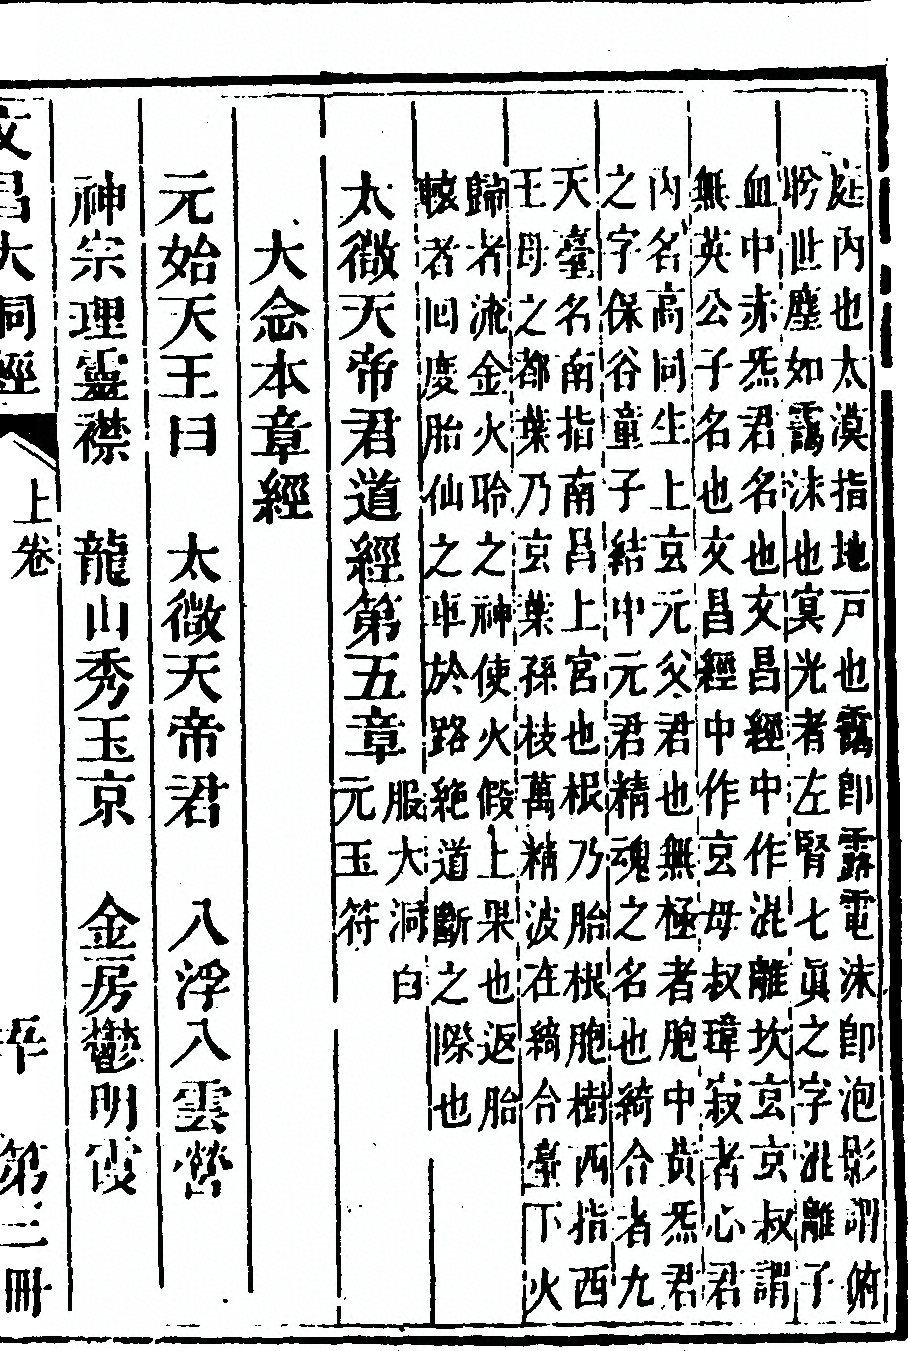 庭內也太漠指地戸也靄即露電沫即泡影謂俯
聆世塵如靄沫也冥光者左腎七眞之字混離子
血中赤炁君名也文昌經中作混離坎玄京叔謂
無英公子名也文昌經中作玄母叔瑋寂者心君
內名高同生上玄元父君也無極者胞中黃炁君
之字保谷童子結中元君精魂之名也綺合者九
天臺名南指南昌上宮也根乃胎根胞樹西指西
王母之都葉乃玄葉孫枝萬精波在綺合臺下火
歸者流金火聆之神使火假上果也返胎
轅者回度胎仙之車於路絶道斷之際也
太微天帝君道經第五章
服大洞白
元玉符
大念本章經
元始天王曰　太微天帝君　八浮八雲營
神宗理靈襟　龍山秀玉京　金房鬱明霞
文昌大洞經　上卷　第三冊